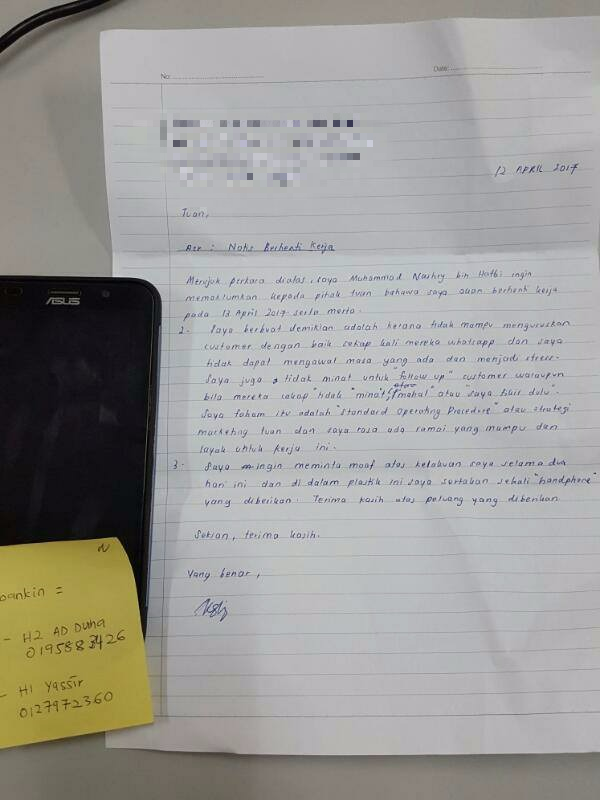 No:
Date:
12 APRIL 2017
Tuan,
Per : Notis Berhenti Kerja
Merujuk perkara diatas, saya Muhammad bin ingin
memaklumkan kepada pihak tuan bahawa saya akan berhenti kerja
pada 13 April 2017 serta merta.
2. Saya berbuat demikian adalah kerana tidak mampu menguruskan
customer dengan baik setiap kali mereka whatsapp dan saya
tidak dapat mengawal masa yang ada dan menjadi stress.
Saya juga tidak minat untuk "follow up" customer walaupun
bila mereka cakap "tidak "minat", "mahal" atau "saya fikir dulu".
Saya faham itu adalah "Standard Operating Procedure" atau strategi
marketing tuan dan saya rasa ada ramai yang mampu dan
layak untuk kerja ini.
3. Saya ingin meminta maaf atas kelakuan saya selama dua
hari ini dan di dalam plastik ini saya sertakan sekali "handphone"
yang diberikan. Terima kasih atas peluang yang diberikan
Sekian, terima kasih.
Yang benar,
ASUS
N
bankin =
- H2 AD Duha
0195883426
- H1 Yassir
0127972360